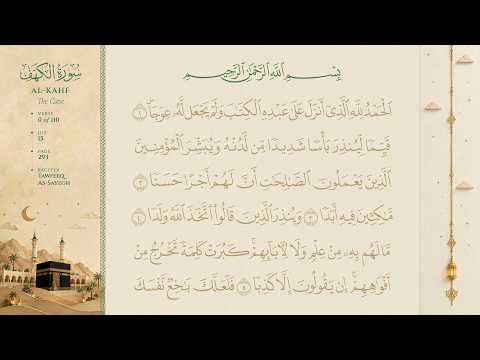 سُورَةُ الْكَهْفِ
AL-KAHF
The Cave
VERSE
0 of 110
JUZ
15
PAGE
293
RECITER
TAWFEEQ
AS-SAYEGH
بِسْمِ اللَّهِ الرَّحْمَٰنِ الرَّحِيمِ
الْحَمْدُ لِلَّهِ الَّذِي أَنزَلَ عَلَىٰ عَبْدِهِ الْكِتَٰبَ وَلَمْ يَجْعَل لَّهُ عِوَجَا ۜ ١
قَيِّمًا لِّيُنذِرَ بَأْسًا شَدِيدًا مِّن لَّدُنْهُ وَيُبَشِّرَ الْمُؤْمِنِينَ
الَّذِينَ يَعْمَلُونَ الصَّٰلِحَٰتِ أَنَّ لَهُمْ أَجْرًا حَسَنًا ٢
مَّٰكِثِينَ فِيهِ أَبَدًا ٣ وَيُنذِرَ الَّذِينَ قَالُوا اتَّخَذَ اللَّهُ وَلَدًا ٤
مَّا لَهُم بِهِ مِنْ عِلْمٍ وَلَا لِآبَائِهِمْ ۚ كَبُرَتْ كَلِمَةً تَخْرُجُ مِنْ
أَفْوَٰهِهِمْ ۚ إِن يَقُولُونَ إِلَّا كَذِبًا ٥ فَلَعَلَّكَ بَٰخِعٌ نَّفْسَكَ